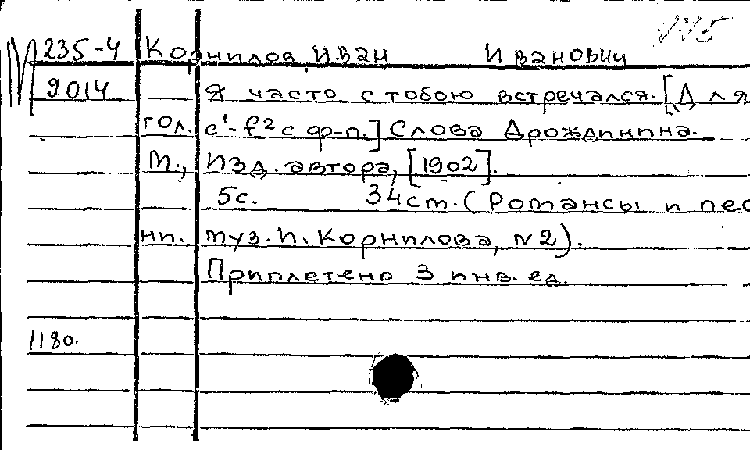 М 235-4 Корнилов Иван Иванович
2014 Я часто с тобою встречался. [Для
гол. c¹-f² с ф-п.] Слова Дрождинина.
М., Изд. автора, [1902].
5с. 34см. (Романсы и пес
ни. муз. И. Корнилова, №2).
Приплетено 3 инв. ед.
1180.